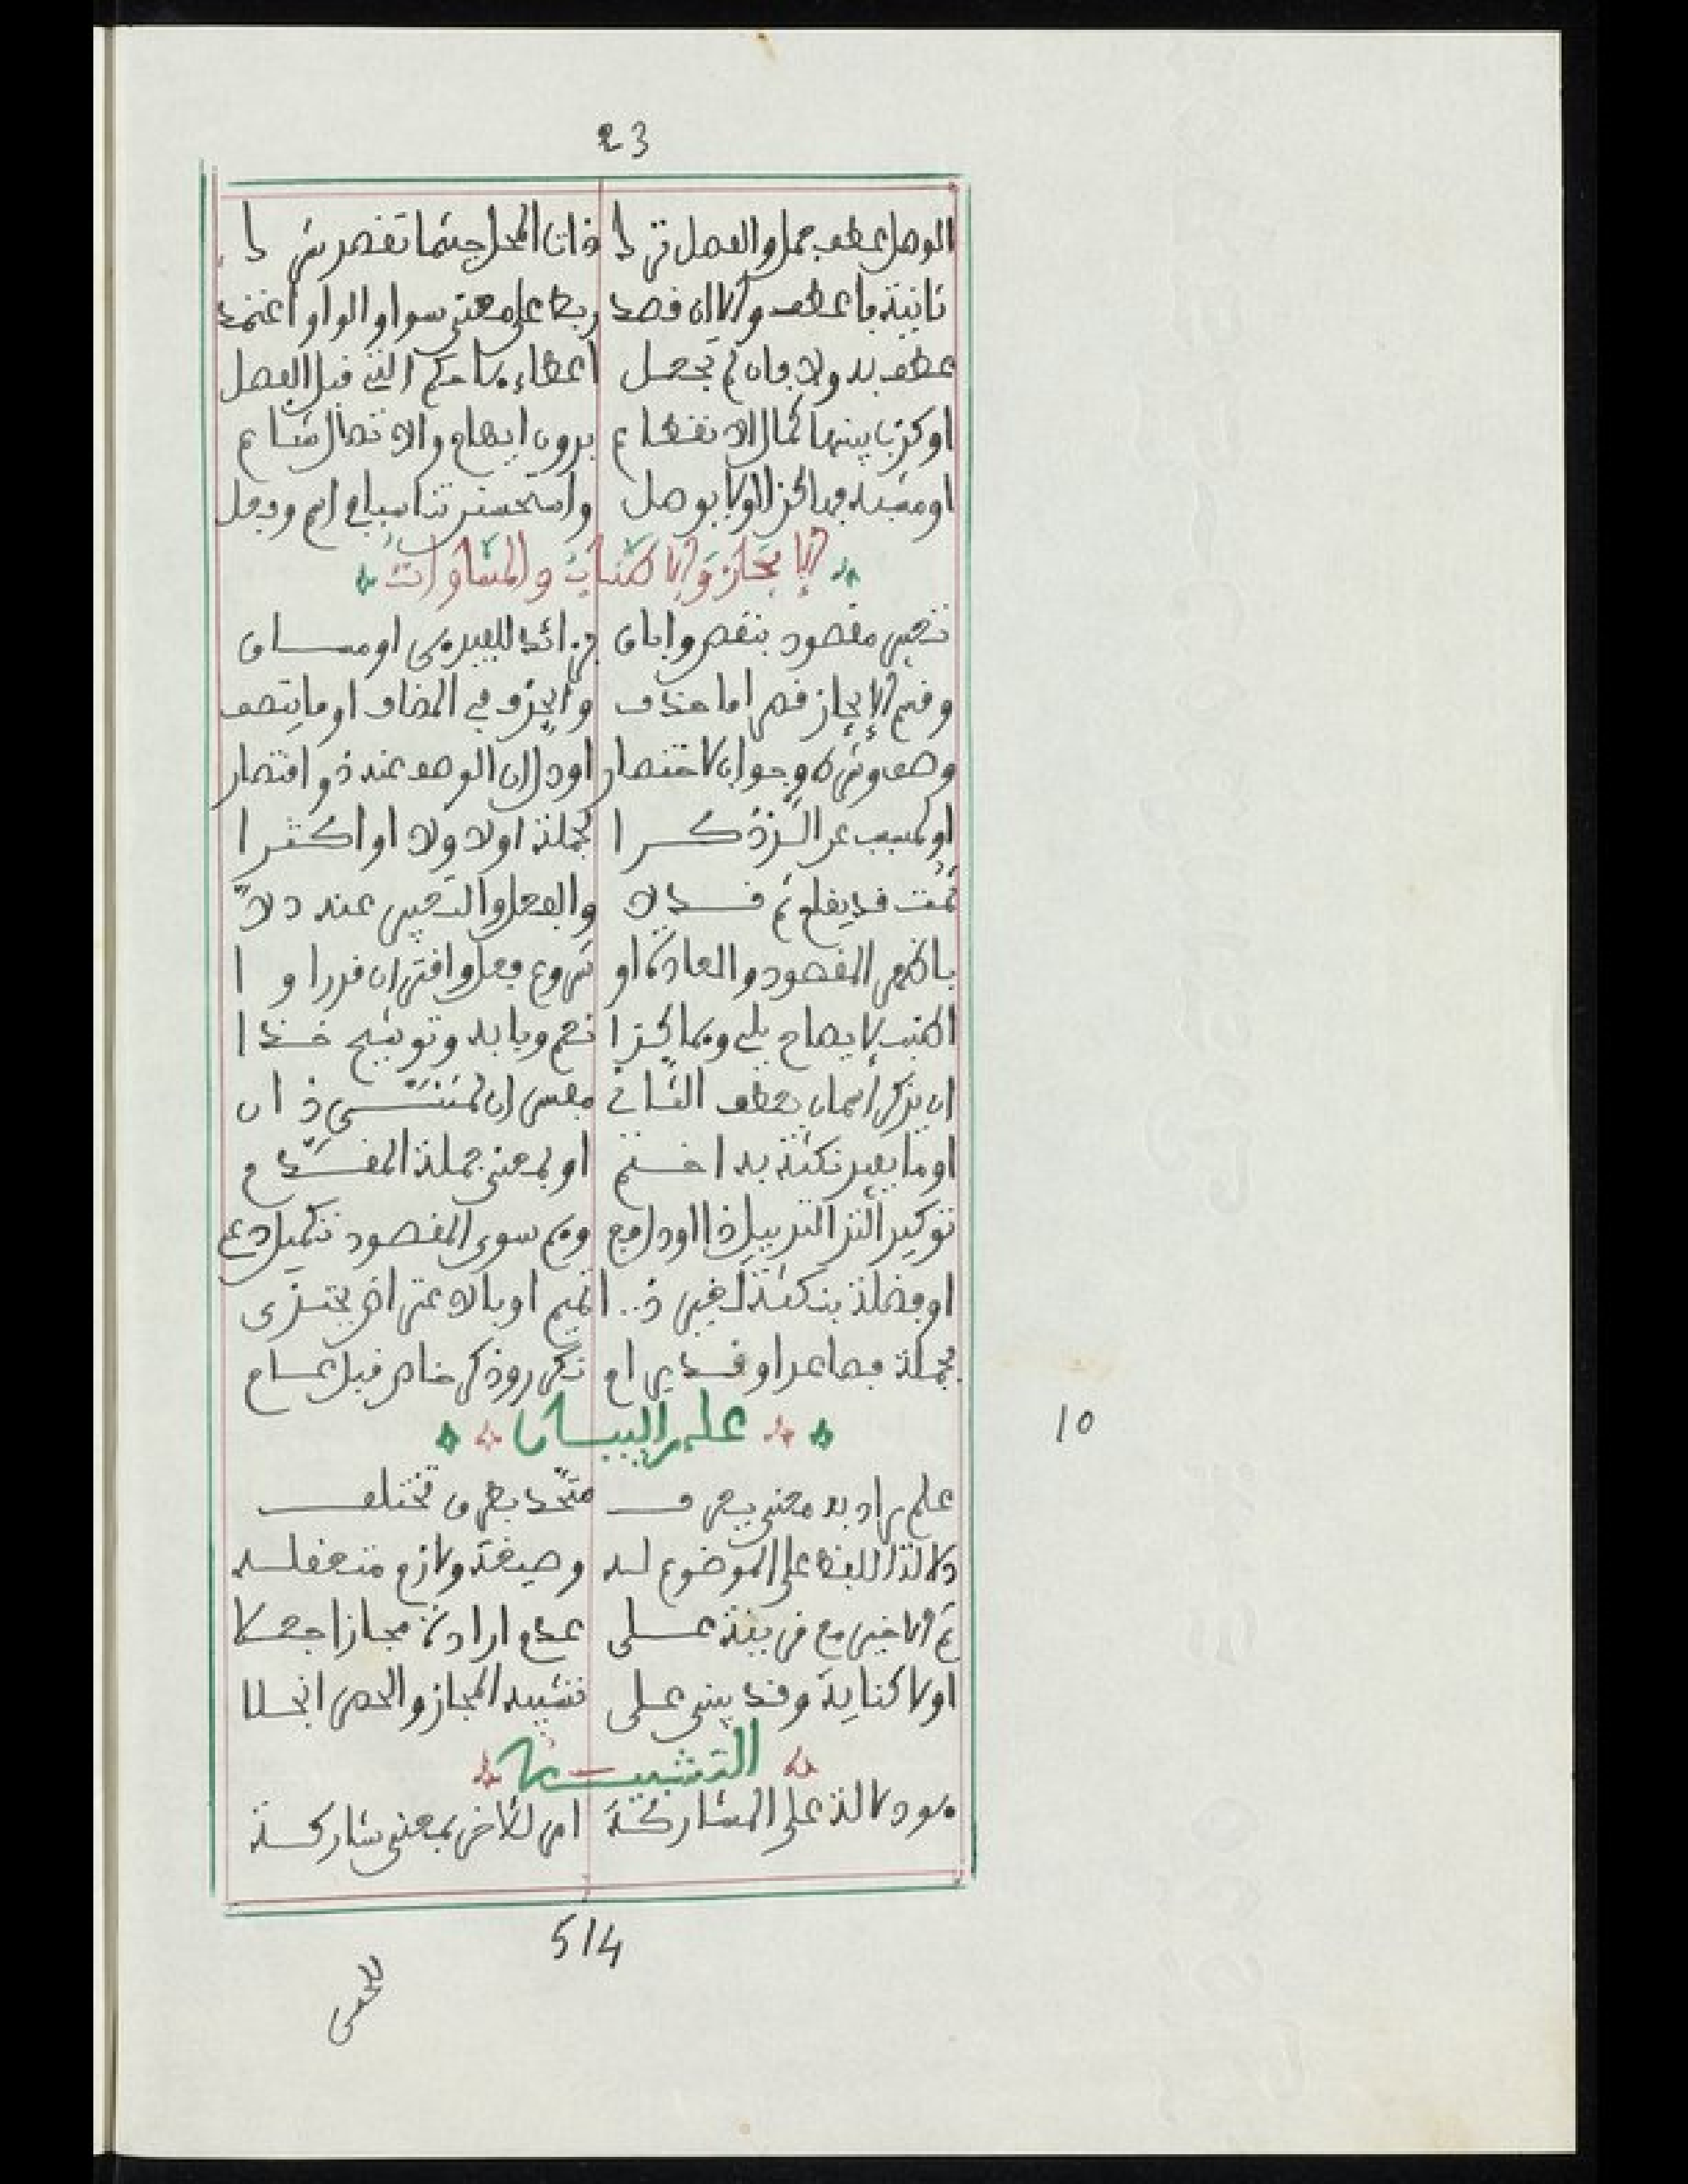 23
الوصل عطف جمل والفصل ترك ذات المحل حيثما تقصر شرك
ثانية بها عطف والا ان قصد ربط على معنى سوا والواو اعتمد
عطف به ولا فان لم يجعل اعطاء حكم التي قبل الفصل
او كان بينهما كمال الانقطاع بدون ايهام والاتصال شاع
او مشبه فداك والا يوصل واستحسن تناسبا في اسم وفعل
الإيجاز والإطناب والمساوات
تعبير مقصود بنقص وافاق زائد لفيد اومساق
وقسم الإيجاز قصر اما حذف والجزء في المضاف او ما يتصف
وصف وشرط وجواب لاختصار او دلان الوصف عنه ذو اقتصار
او لسبب عن الذي ذكرا لجملة اولا ولا او اكثرا
ثمت قد يقام ثم قد لا والفعل والتعيين عنه دلا
باظهر المقصود والعادة او شروع فعل واقتران قدراوا
اطنب لايضاح يلي وهاكذا نعم وبابه وتوشيح خذا
ان يذكر اسمان بعطف الثاني مفسران لمثنى ذان
او ما يفيد نكتة به اختتم او لمعنى جملة المقدم
توكيد التذييل ذا اودافع وهم سوى المقصود تكميل دع
او فضلة بنكتة لغير ذا تتميم او بالاعتراض يحتذى
بجملة فصاعدا وقد يرام تكرر وذكر خاص قبل عام
علم البيان
10
علم يراد به معنى يعرف متحد بطرق تختلف
دلالة اللفظ على الموضوع له وصيغة ولازم متعقل له
ثم الاخير مع قرينة على عدم ارادة مجازا جعلا
اولا كناية وقد يبنى على تشبيه المجاز والحصر انجلا
التشبيه
هو دلالة على المشاركة امر للاخر بمعنى شاركه
514